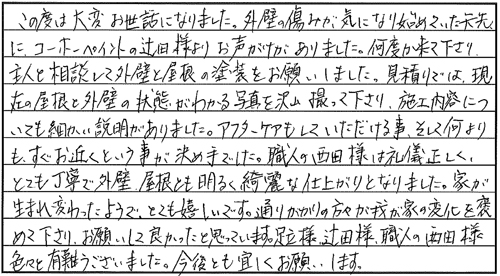 この度は大変お世話になりました。外壁の傷みが気になり始めていた矢先
に、コーホーペイントの辻田様よりお声がけがありました。何度か来て下さり、
主人と相談して外壁と屋根の塗装をお願いしました。見積りでは、現
在の屋根と外壁の状態がわかる写真を沢山撮って下さり、施工内容につ
いても細かい説明がありました。アフターケアもしていただける事、そして何より
も、すぐお近くという事が決め手でした。職人の西田様は礼儀正しく、
とても丁寧で外壁、屋根とも明るく綺麗な仕上がりとなりました。家が
生まれ変わったようで、とても嬉しいです。通りがかりの方々が我が家の変化を褒
めて下さり、お願いして良かったと思っています。足立様、辻田様、職人の西田様
色々と有難うございました。今後とも宜しくお願いします。